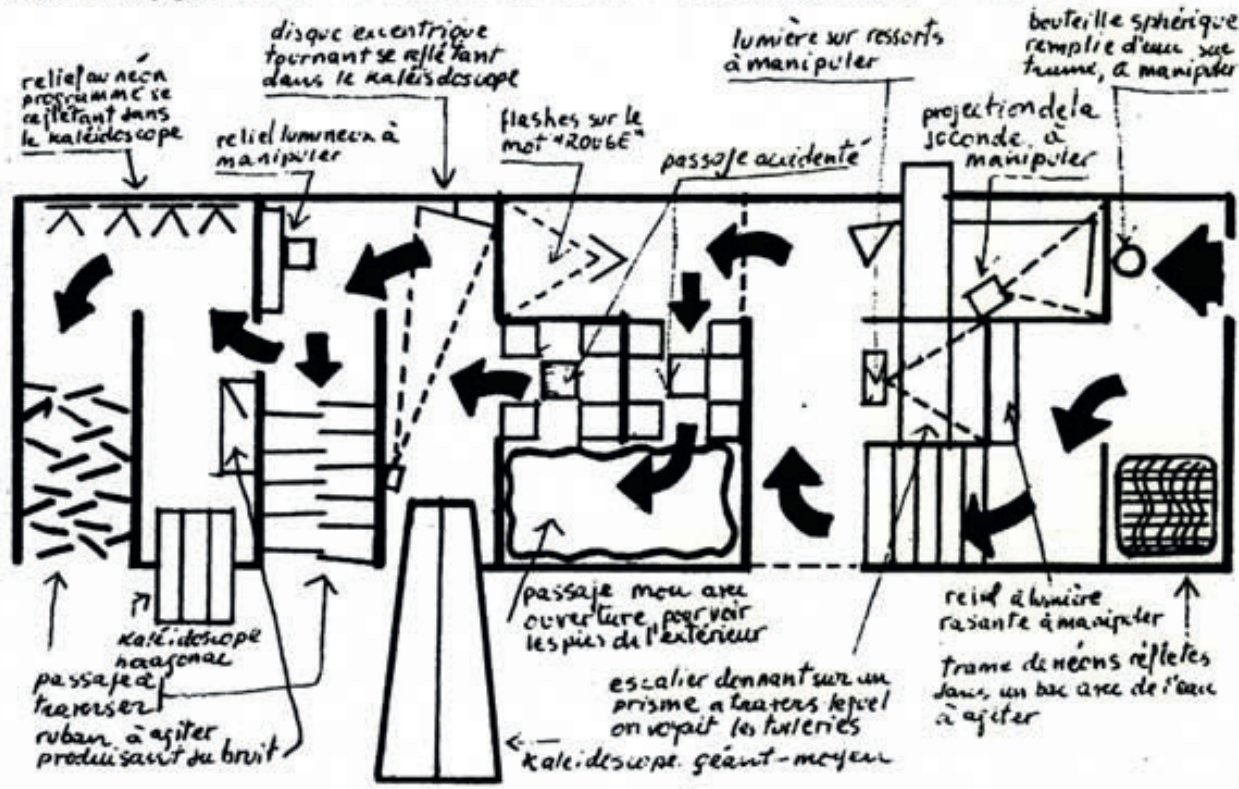 relief au néon
programmé se
reflétant dans
le kaléidoscope
disque excentrique
tournant se reflétant
dans le kaleïdoscope
relief lumineux à
manipuler
flashes sur le
mot "ROUGE"
passaje accidenté
lumière sur ressorts
à manipuler
projection de la
seconde, à
manipuler
bouteille sphérique
remplie d'eau sur
trame, à manipuler
kaléidoscope
passaje à
traverser
ruban à agiter
produisant du bruit
passaje mou avec
ouverture pour voir
les pies de l'extérieur
escalier donnant sur un
prisme a travers lequel
on voyait les tuileries
kaleidoscope géant-moyen
relief à lumière
rasante à manipuler
trame de néons réfletes
dans un bac avec de l'eau
à agiter